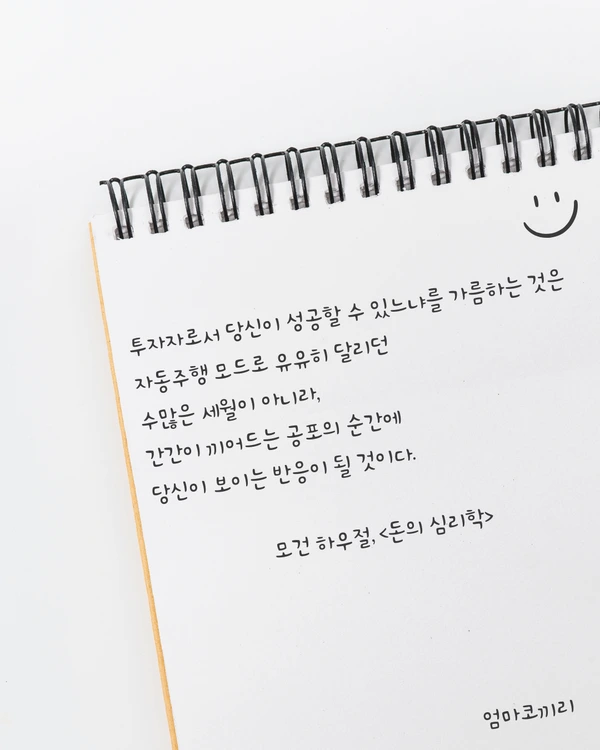 투자자로서 당신이 성공할 수 있느냐를 가름하는 것은
자동주행 모드로 유유히 달리던
수많은 세월이 아니라,
간간이 끼어드는 공포의 순간에
당신이 보이는 반응이 될 것이다.
모건 하우절, <돈의 심리학>
엄마코끼리